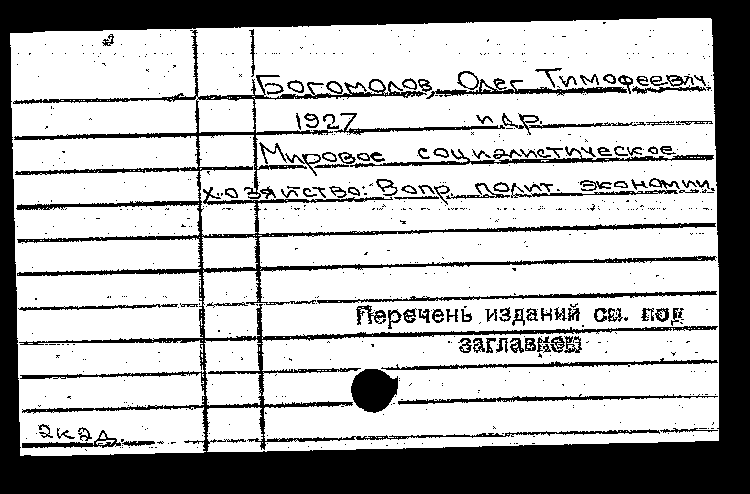 Богомолов, Олег Тимофеевич
1927 и др.
Мировое социалистическое
хозяйство: Вопр. полит. экономии.
Перечень изданий см. под
заглавием
2к2д.